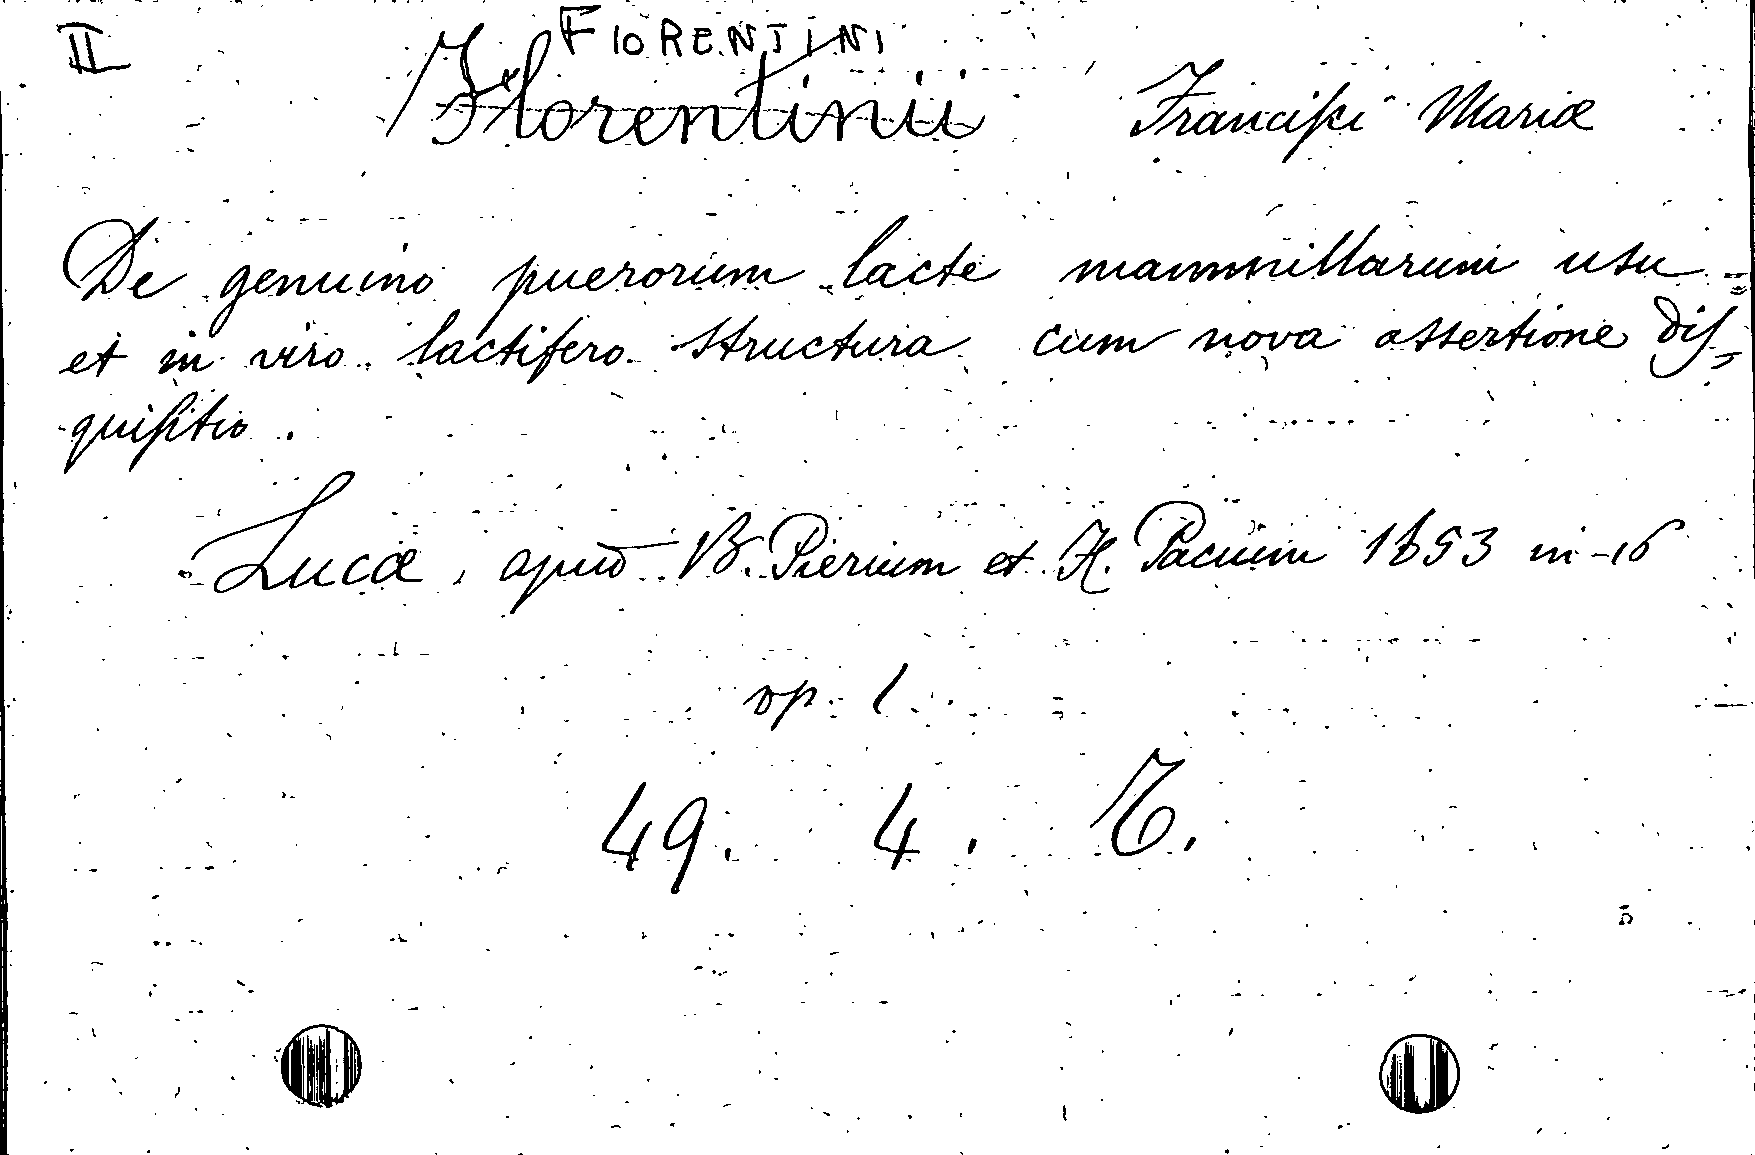 II
FIORENTINI
Florentinii Francisci Mariæ
De genuino puerorum lacte mammillarum usu
et in viro lactifero structura cum nova assertione dis,
quisitio.
Lucæ, apud B. Pierium et H. Pacium 1853 in-16
op. 1
49. 4.